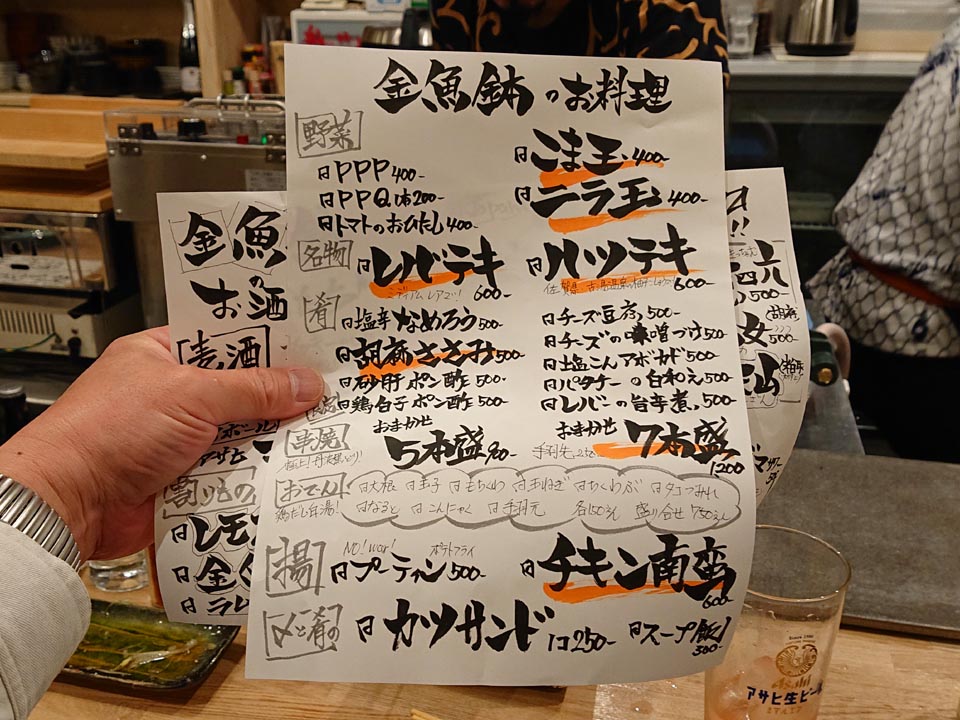 金魚鉢のお料理
野菜
PPP 400-
PPQ 1本200-
トマトのおひたし 400-
ごま玉 400-
ニラ玉 400-
名物
レバテキ 600-
ミディアムレアで!
ハツテキ 600-
肴
塩辛なめろう 500-
胡麻ささみ 500-
砂肝ポン酢 500-
鶏白子ポン酢 500-
チーズ豆腐 500-
チーズの味噌づけ 500-
塩こんアボカド 500-
バタチーの白和え 500-
レバーの旨辛煮 500-
串焼
おまかせ
5本盛 920-
手羽先 250-
おまかせ
7本盛 1200
おでん!
鶏だし白湯!
大根 玉子 もちくわ 玉ねぎ ちくわぶ タコつみれ
なると こんにゃく 手羽元 各150えん 盛り合せ 750えん
揚
NO! war! ポテトフライ
プーティン 500-
チキン南蛮 600-
〆と肴の
カツサンド 1コ250-
スープ飯 300-
金魚
のお酒
麦酒
アサヒ
割りもの
レモン
金く
ラム
500-
500-
Since 1889
Asahi
アサヒ生ビール